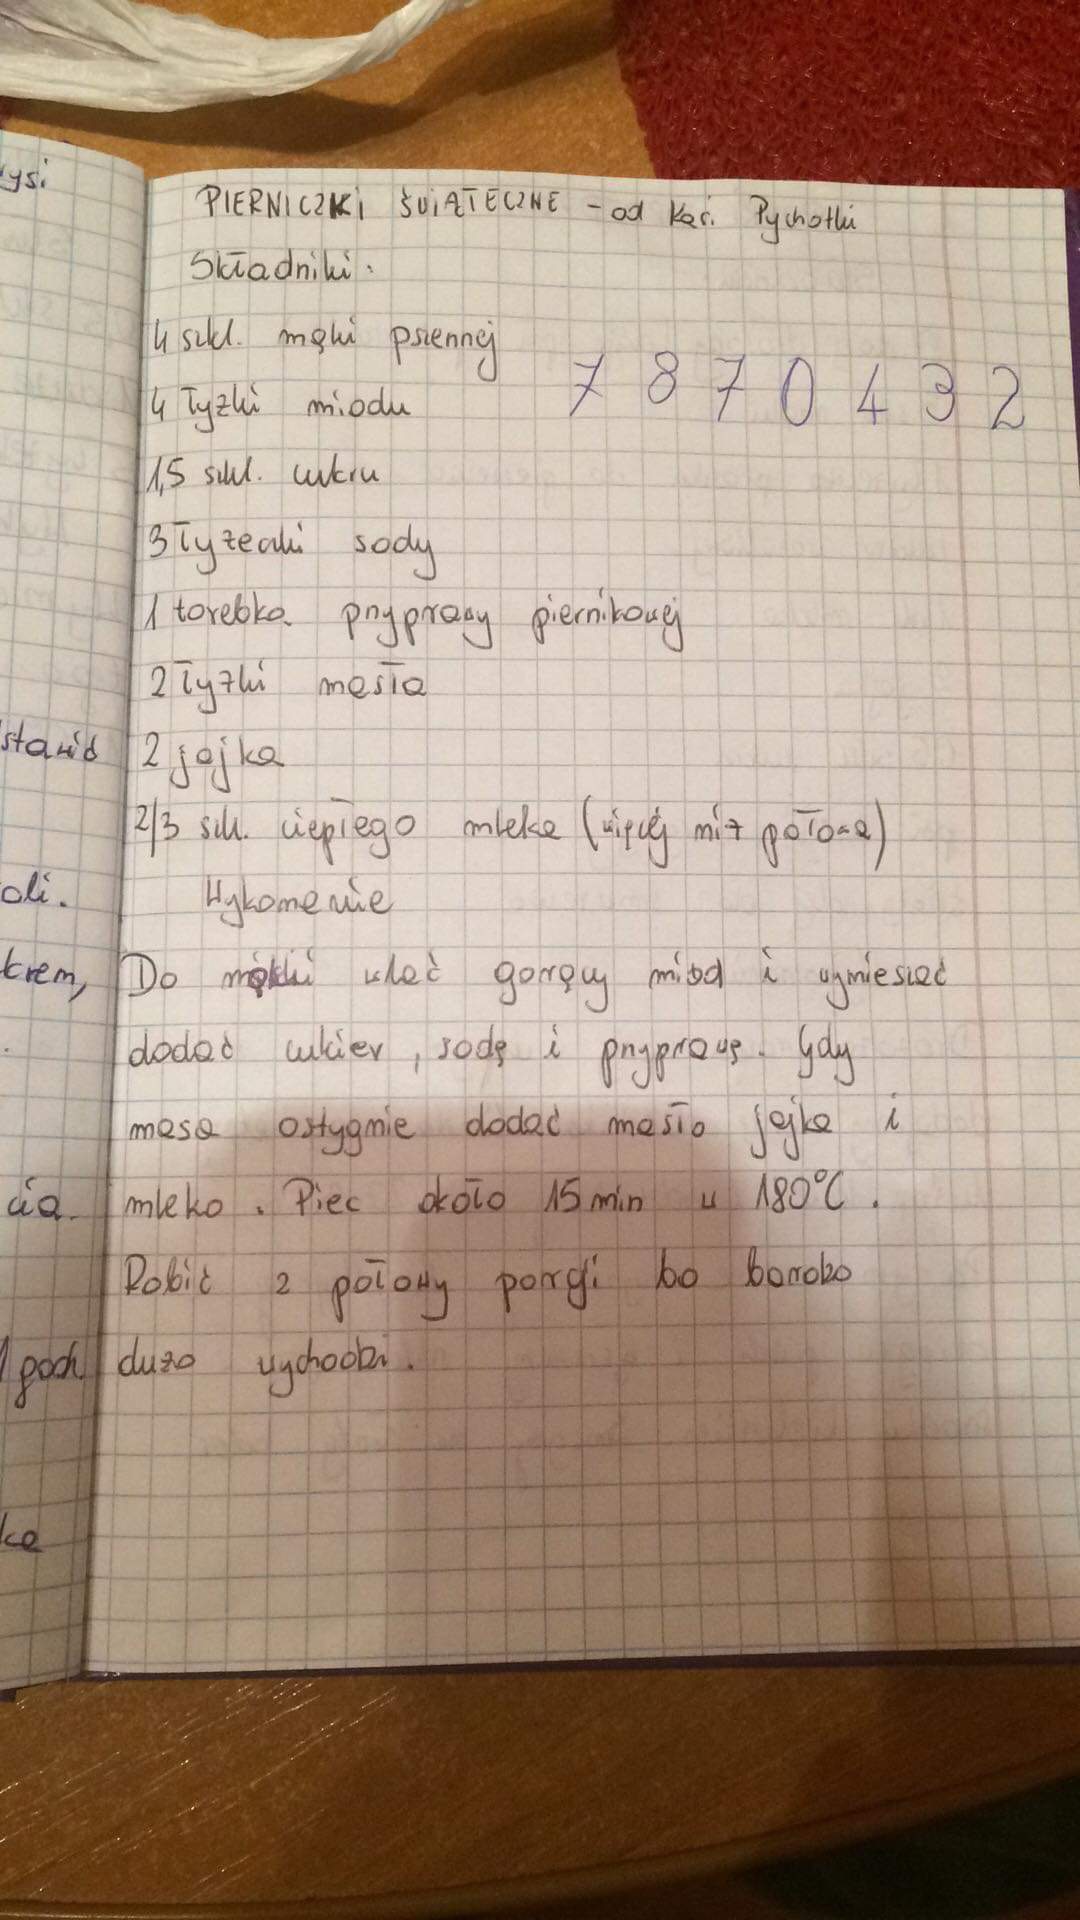 PIERNICZKI ŚWIĄTECZNE - od Kasi Pychotki
Składniki:
4 szkl. mąki pszennej
7870432
4 łyżki miodu
1,5 szkl. cukru
3 łyżeczki sody
1 torebka przyprawy piernikowej
2 łyżki masła
2 jajka
2/3 szkl. ciepłego mleka (więcej niż połowa)
Wykonanie
Do mąki wlać gorący miód i wymieszać
dodać cukier, sodę i przyprawę. Gdy
masa ostygnie dodać masło jajka i
mleko. Piec około 15 min w 180°C.
Robić z połowy porcji bo bardzo
dużo wychodzi.